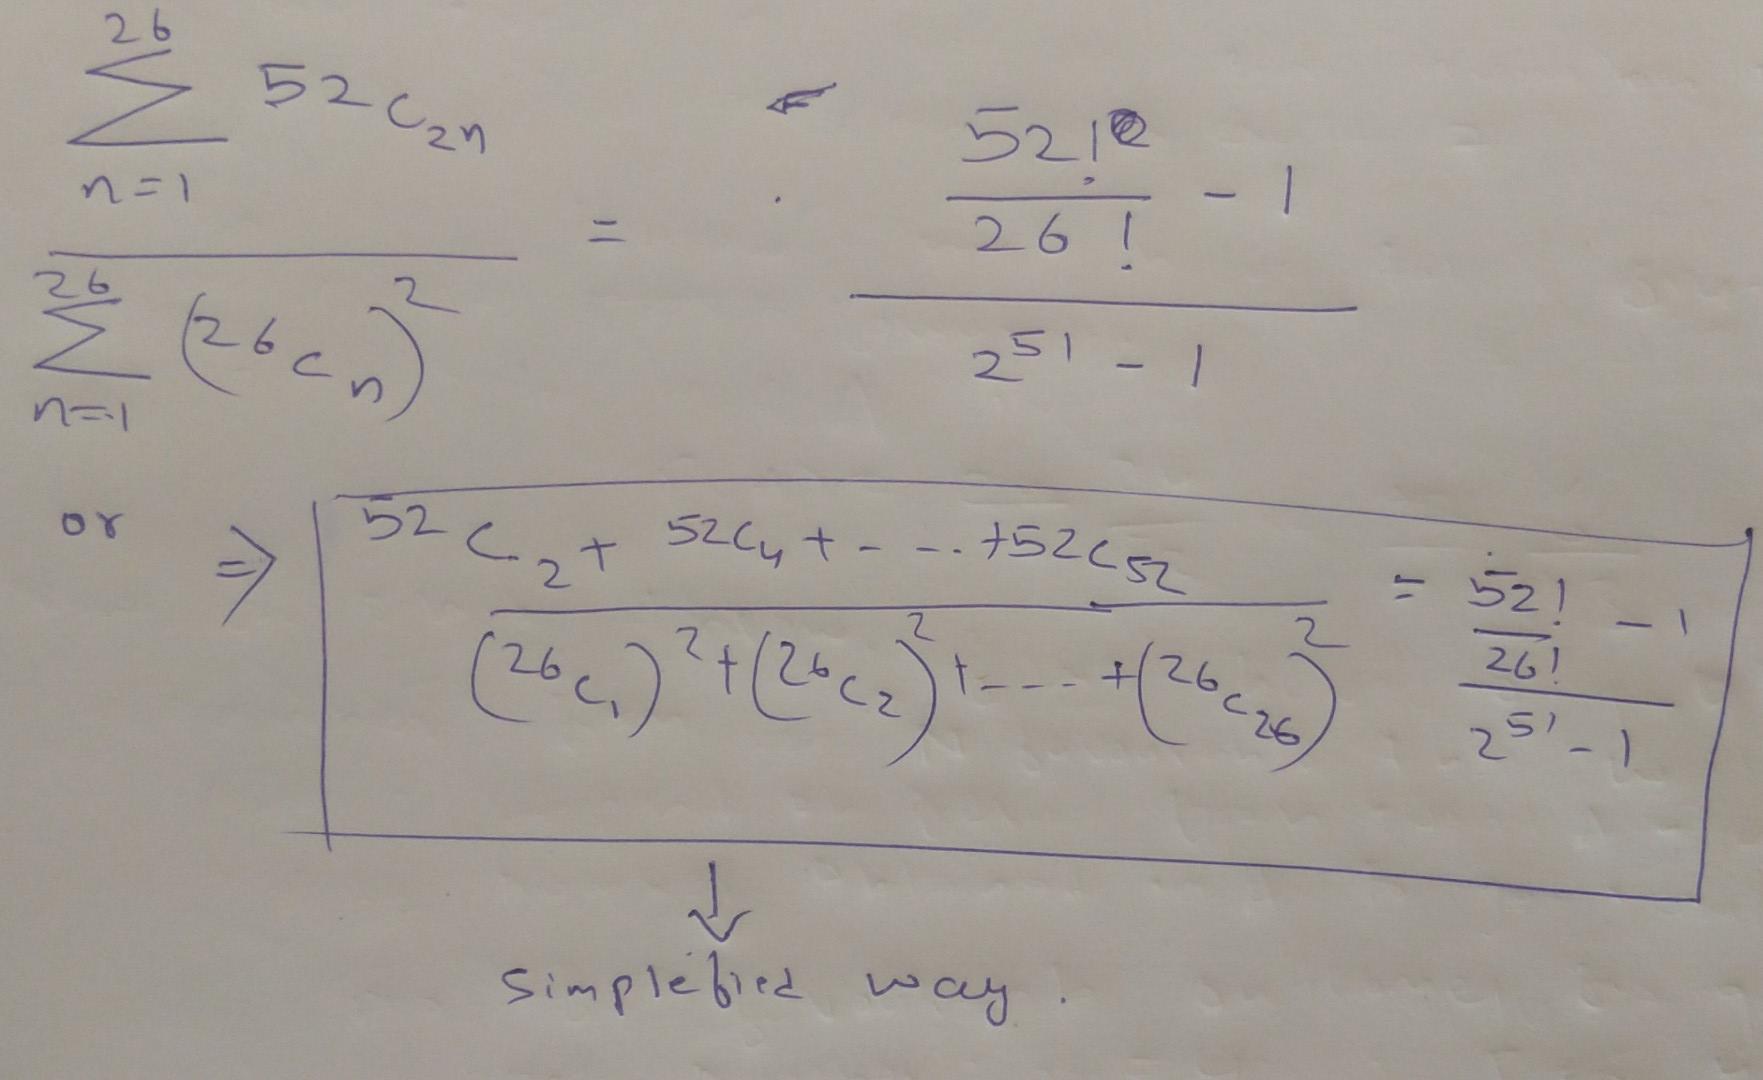 26
∑ 52C₂ₙ
n=1
26
∑ (26Cₙ)²
n=1
=
52!
26!
- 1
2⁵¹ - 1
or ⇒ ⁵²C₂ + 52C₄ + - - .. + 52C₅₂
(26C₁)² + (26C₂)² + - - - . + (26C₂₆)²
= 52!
26!
- 1
2⁵¹ - 1
↓
Simplefied way.